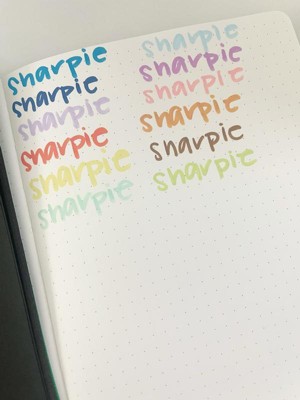 sharpie sharpie
sharpie sharpie
sharpie sharpie
sharpie sharpie
sharpie sharpie
sharpie sharpie